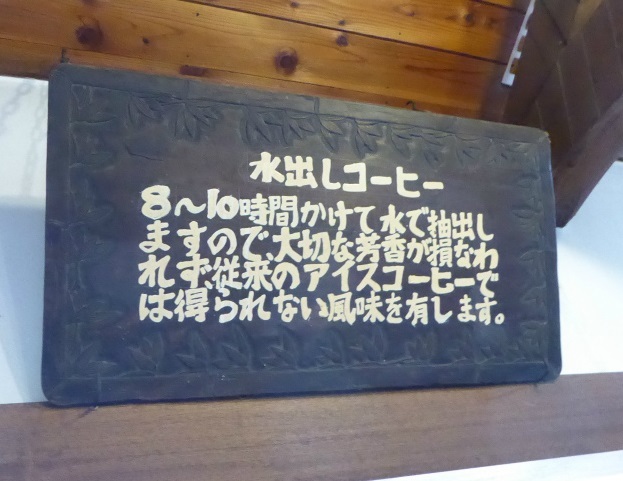 水出しコーヒー
8〜10時間かけて水で抽出し
ますので、大切な芳香が損なわ
れず、従来のアイスコーヒーで
は得られない風味を有します。